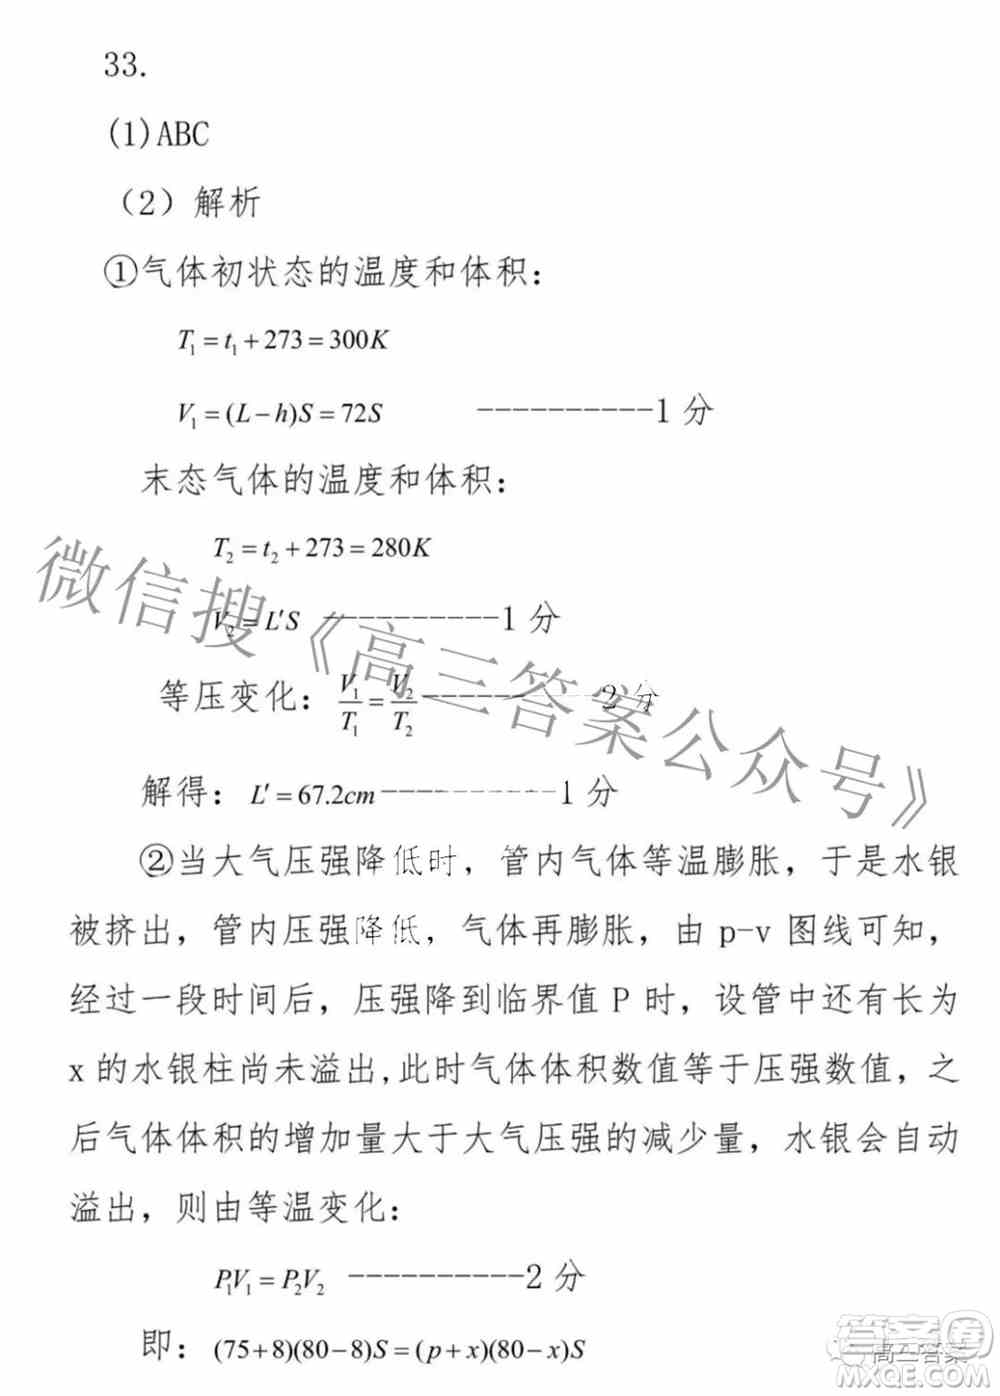 33.
(1)ABC
（2）解析
①气体初状态的温度和体积：
T₁=t₁+273=300K
V₁=(L-h)S=72S ----------1 分
末态气体的温度和体积：
T₂=t₂+273=280K
V₂=L'S ----------1 分
等压变化：V₁/T₁=V₂/T₂----------2 分
解得：L'=67.2cm----------1 分
②当大气压强降低时，管内气体等温膨胀，于是水银
被挤出，管内压强降低，气体再膨胀，由 p-v 图线可知，
经过一段时间后，压强降到临界值 P 时，设管中还有长为
x 的水银柱尚未溢出,此时气体体积数值等于压强数值，之
后气体体积的增加量大于大气压强的减少量，水银会自动
溢出，则由等温变化：
P₁V₁=P₂V₂ ----------2 分
即：(75+8)(80-8)S=(p+x)(80-x)S
微信搜《高三答案公众号》
答案圈
高三答案
MXQE.COM